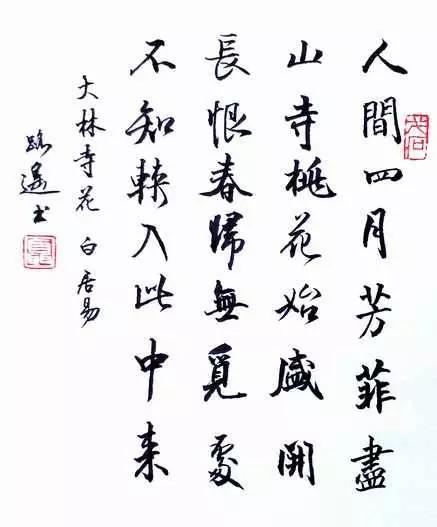 人間四月芳菲盡
山寺桃花始盛開
長恨春歸無覓處
不知轉入此中来
大林寺花 白居易
書